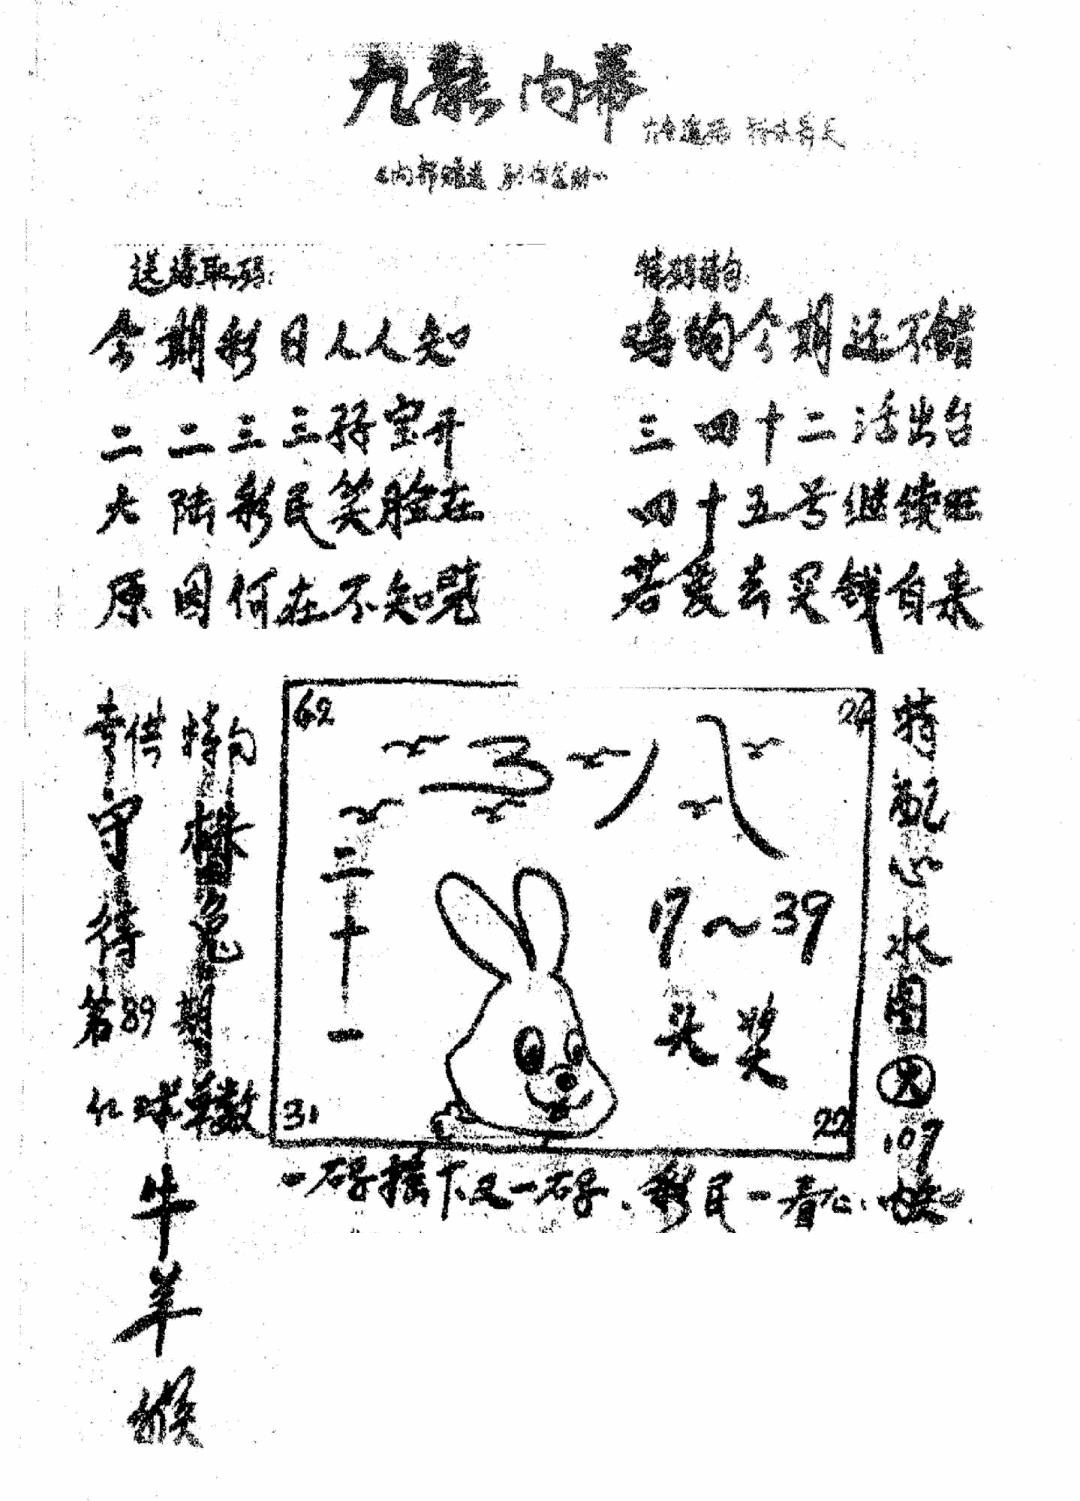 九龙内幕
送诗取码:
今期彩日人人知
二二三三孖宝开
大陆彩民笑脸在
原因何在不知晓
特码诗句
鸡狗今期还不错
三四十二活出台
四十五号继续旺
若爱去买钱自来
幸供特句
守株待兔
第89期
红球单数
牛
羊
猴
62
24
二十一
17~39
头奖
31
22
特配心水图
大
一码摇下又一码、彩民一看心